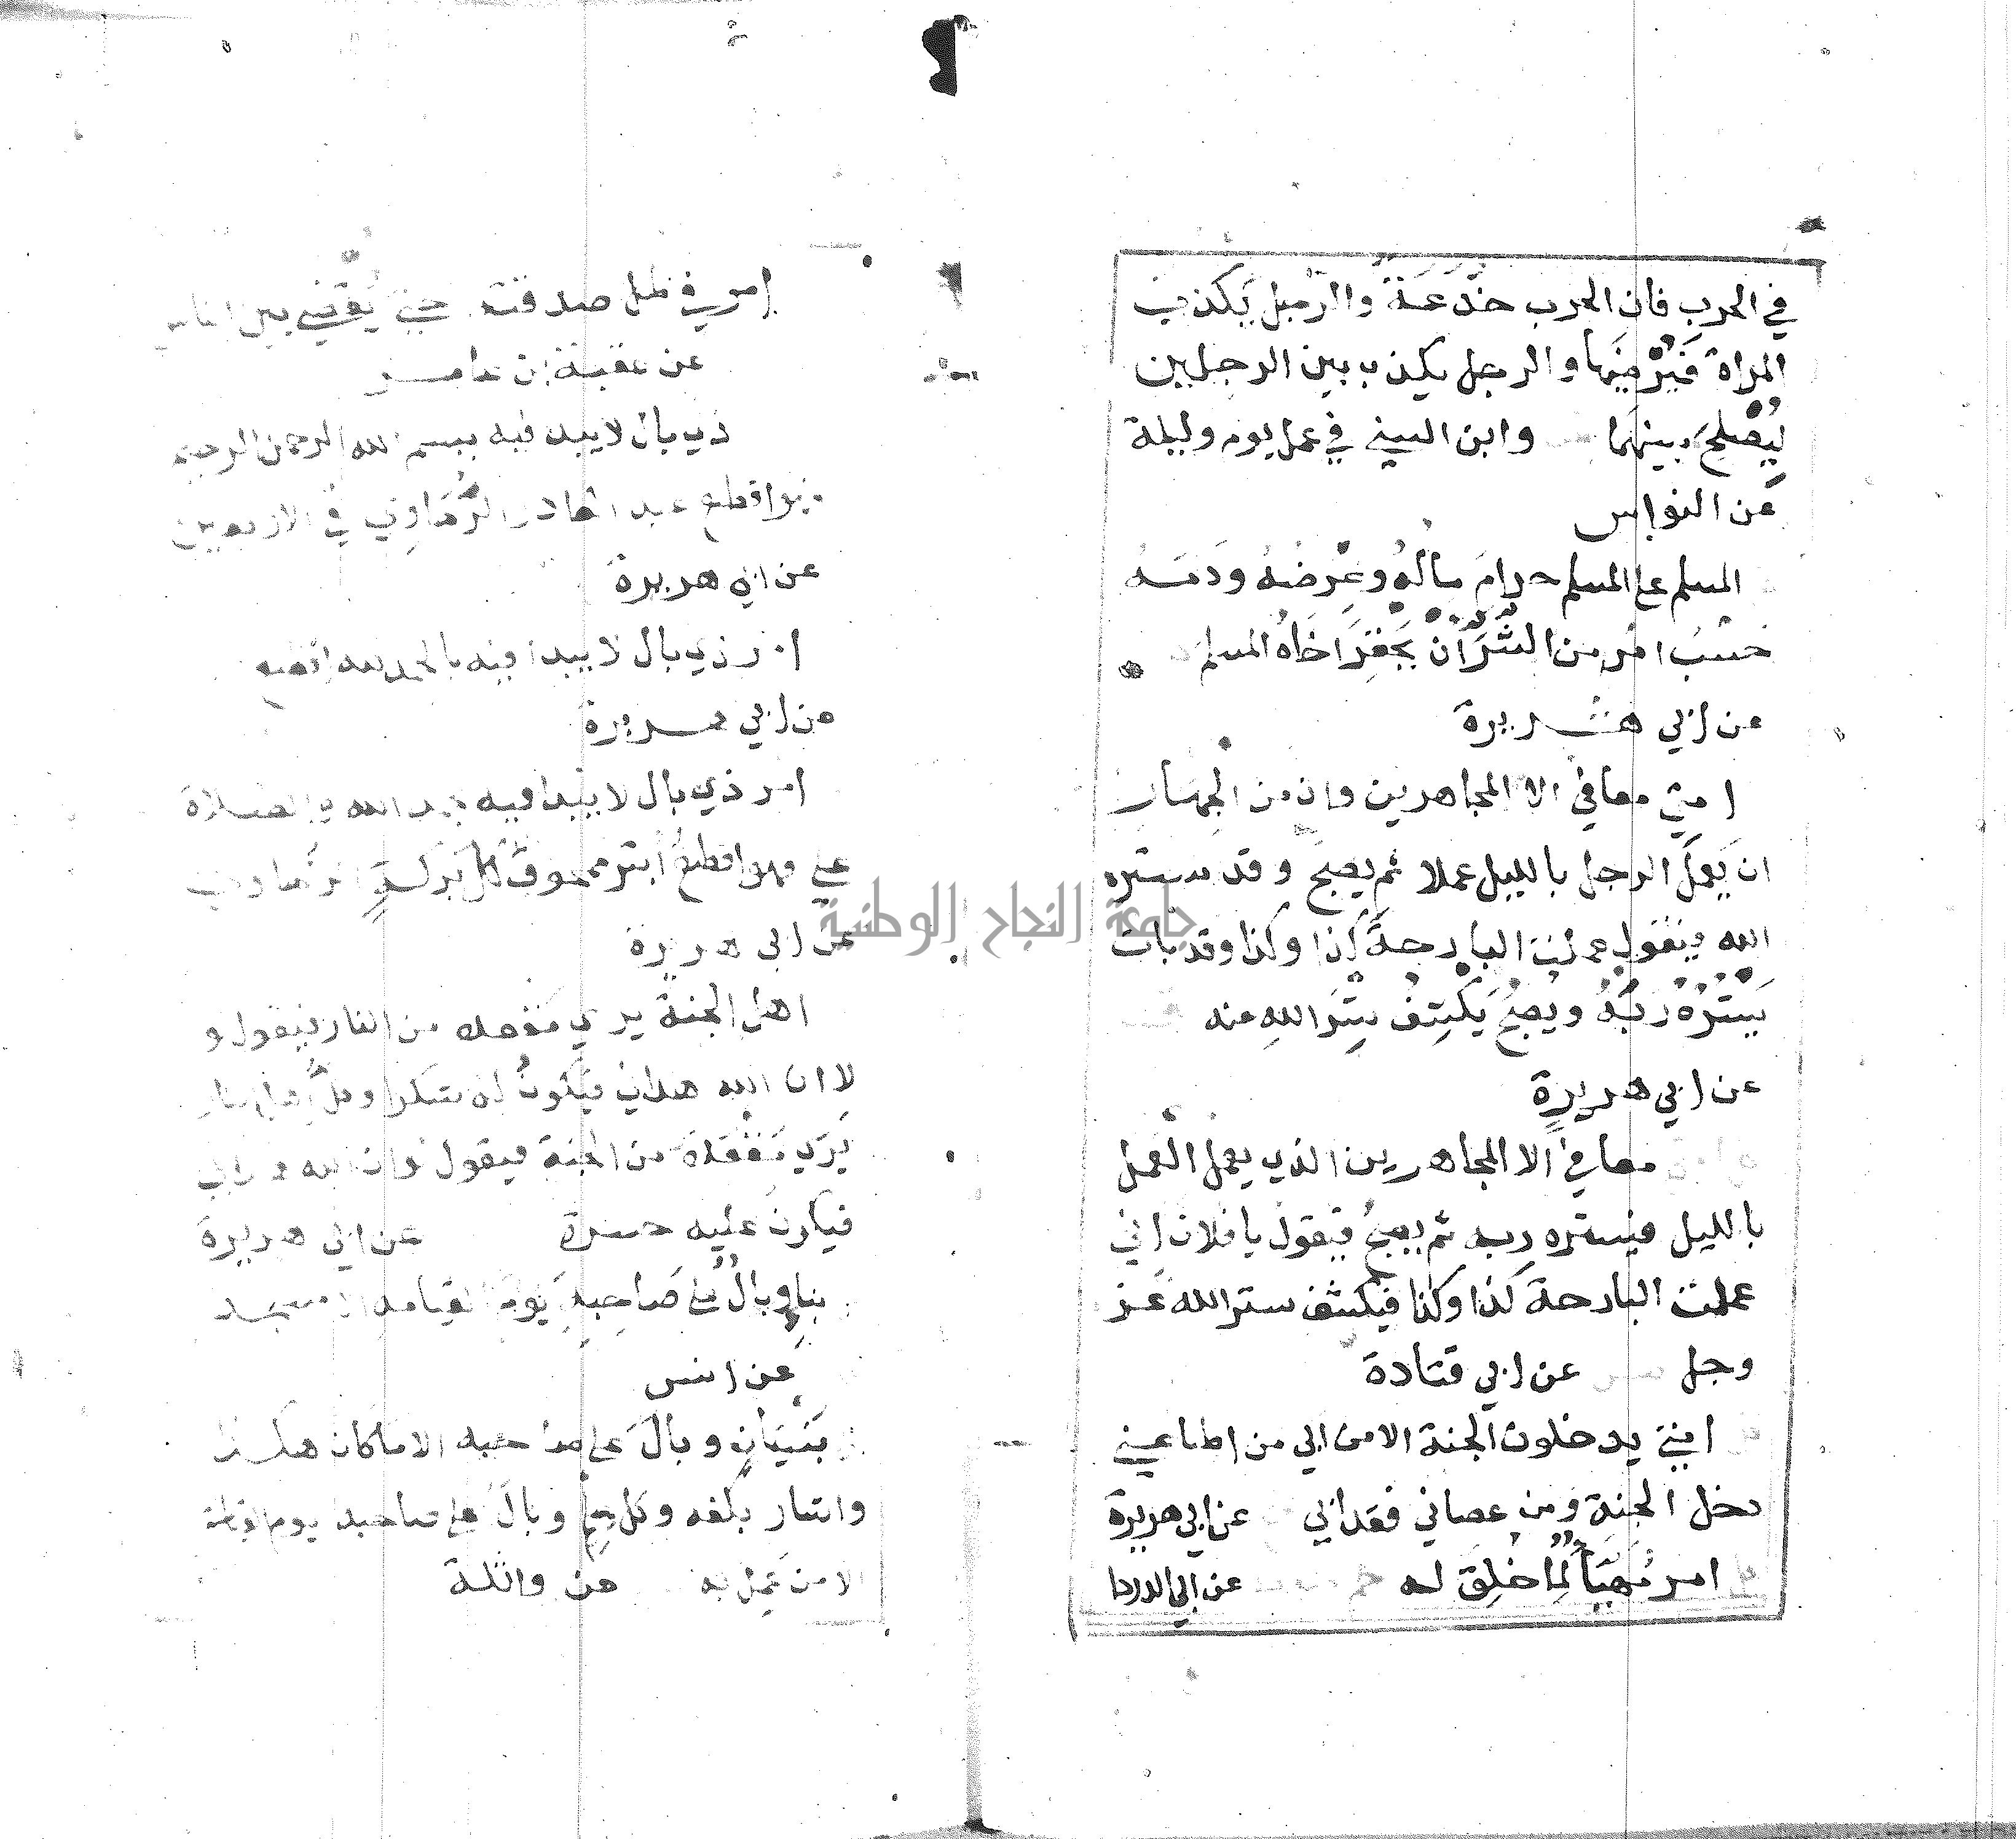 في الحرب فان الحرب خَدْعَةٌ والرجل يَكذب
المراة فَيُرْضِيَها والرجل يكذب بين الرجلين
لِيُصْلِحَ بينهَما وابن السني في عمل يوم وليلة
عن النواس
المسلم على المسلم حرام مالُهُ وعِرْضُهُ ودَمُه
حَسْبُ امرء من الشَّرِّ انْ يَحْقِرَ اخَاهُ المسلم
عن ابي هريرة
امتي معافى الا المجاهرين وان من الجهار
ان يَعمَلَ الرجل بالليل عملا ثم يصبح وقد ستره
الله فيقول عملت البارحة كذا وكذا وقد بات
يَسْتُرُهُ رَبُّهُ ويُصبحُ يَكْشِفُ سِتْرَ اللهِ عنه
عن ابي هريرة
معافى الا المجاهرين الذي يعمل العمل
بالليل فيستره ربه ثم يصبح فيقول يا فلان اني
عملت البارحة كذا وكذا فيكشف ستر الله عز
وجل عن ابي قتادة
امتي يدخلون الجنة الا من ابى من اطاعني
دخل الجنة ومن عصاني فقد ابى عن ابي هريرة
امرء مُهَيَّأٌ لِمَا خُلِقَ له عن ابي الدردا
امرئ في ظل صدقته حتى يُقْضى بين الناس
عن عقبة بن عامر
ذي بال لا يبدا فيه ببسم الله الرحمن الرحيم
فهو اقطع عبد القادر الرُّهَاوي في الاربعين
عن ابي هريرة
امر ذي بال لا يبدا فيه بالحمد لله اقطع
عن ابي هريرة
امر ذي بال لا يبدا فيه بحمد الله والصلاة
علي فهو اقطع ابتر ممحوق كل بركة الرهاوي
عن ابي هريرة
اهل الجنة يرى مقعده من النار فيقول لو
لا ان الله هداني فيكونُ له شكرا وكلُّ اهل النار
يَرَى مَقْعَدَهُ من الجنة فيقول لو ان الله هداني
فيكون عليه حسرة عن ابي هريرة
بناء وبال على صَاحِبِهِ يَومَ القيامة الا مسجد
عن انس
بُنْيَانٍ وبال على صاحبه الا ما كان هكذا
واشار بكفه وكل علم وبال على صاحبه يوم القيامة
الا من عَمِلَ به عن واثلة
جامعة النجاح الوطنية